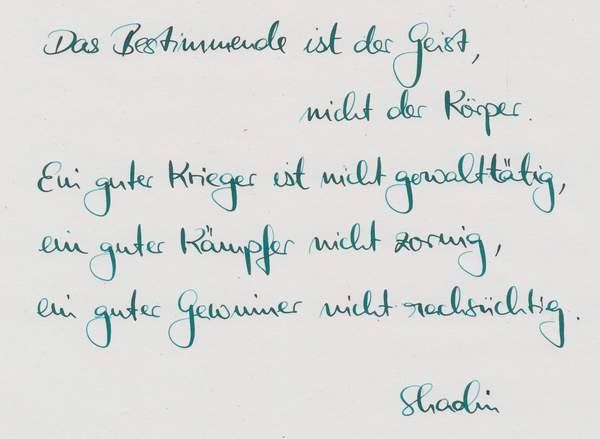 Das Bestimmende ist der Geist,
nicht der Körper.
Ein guter Krieger ist nicht gewalttätig,
ein guter Kämpfer nicht zornig,
ein guter Gewinner nicht rachsüchtig.
Shaolin